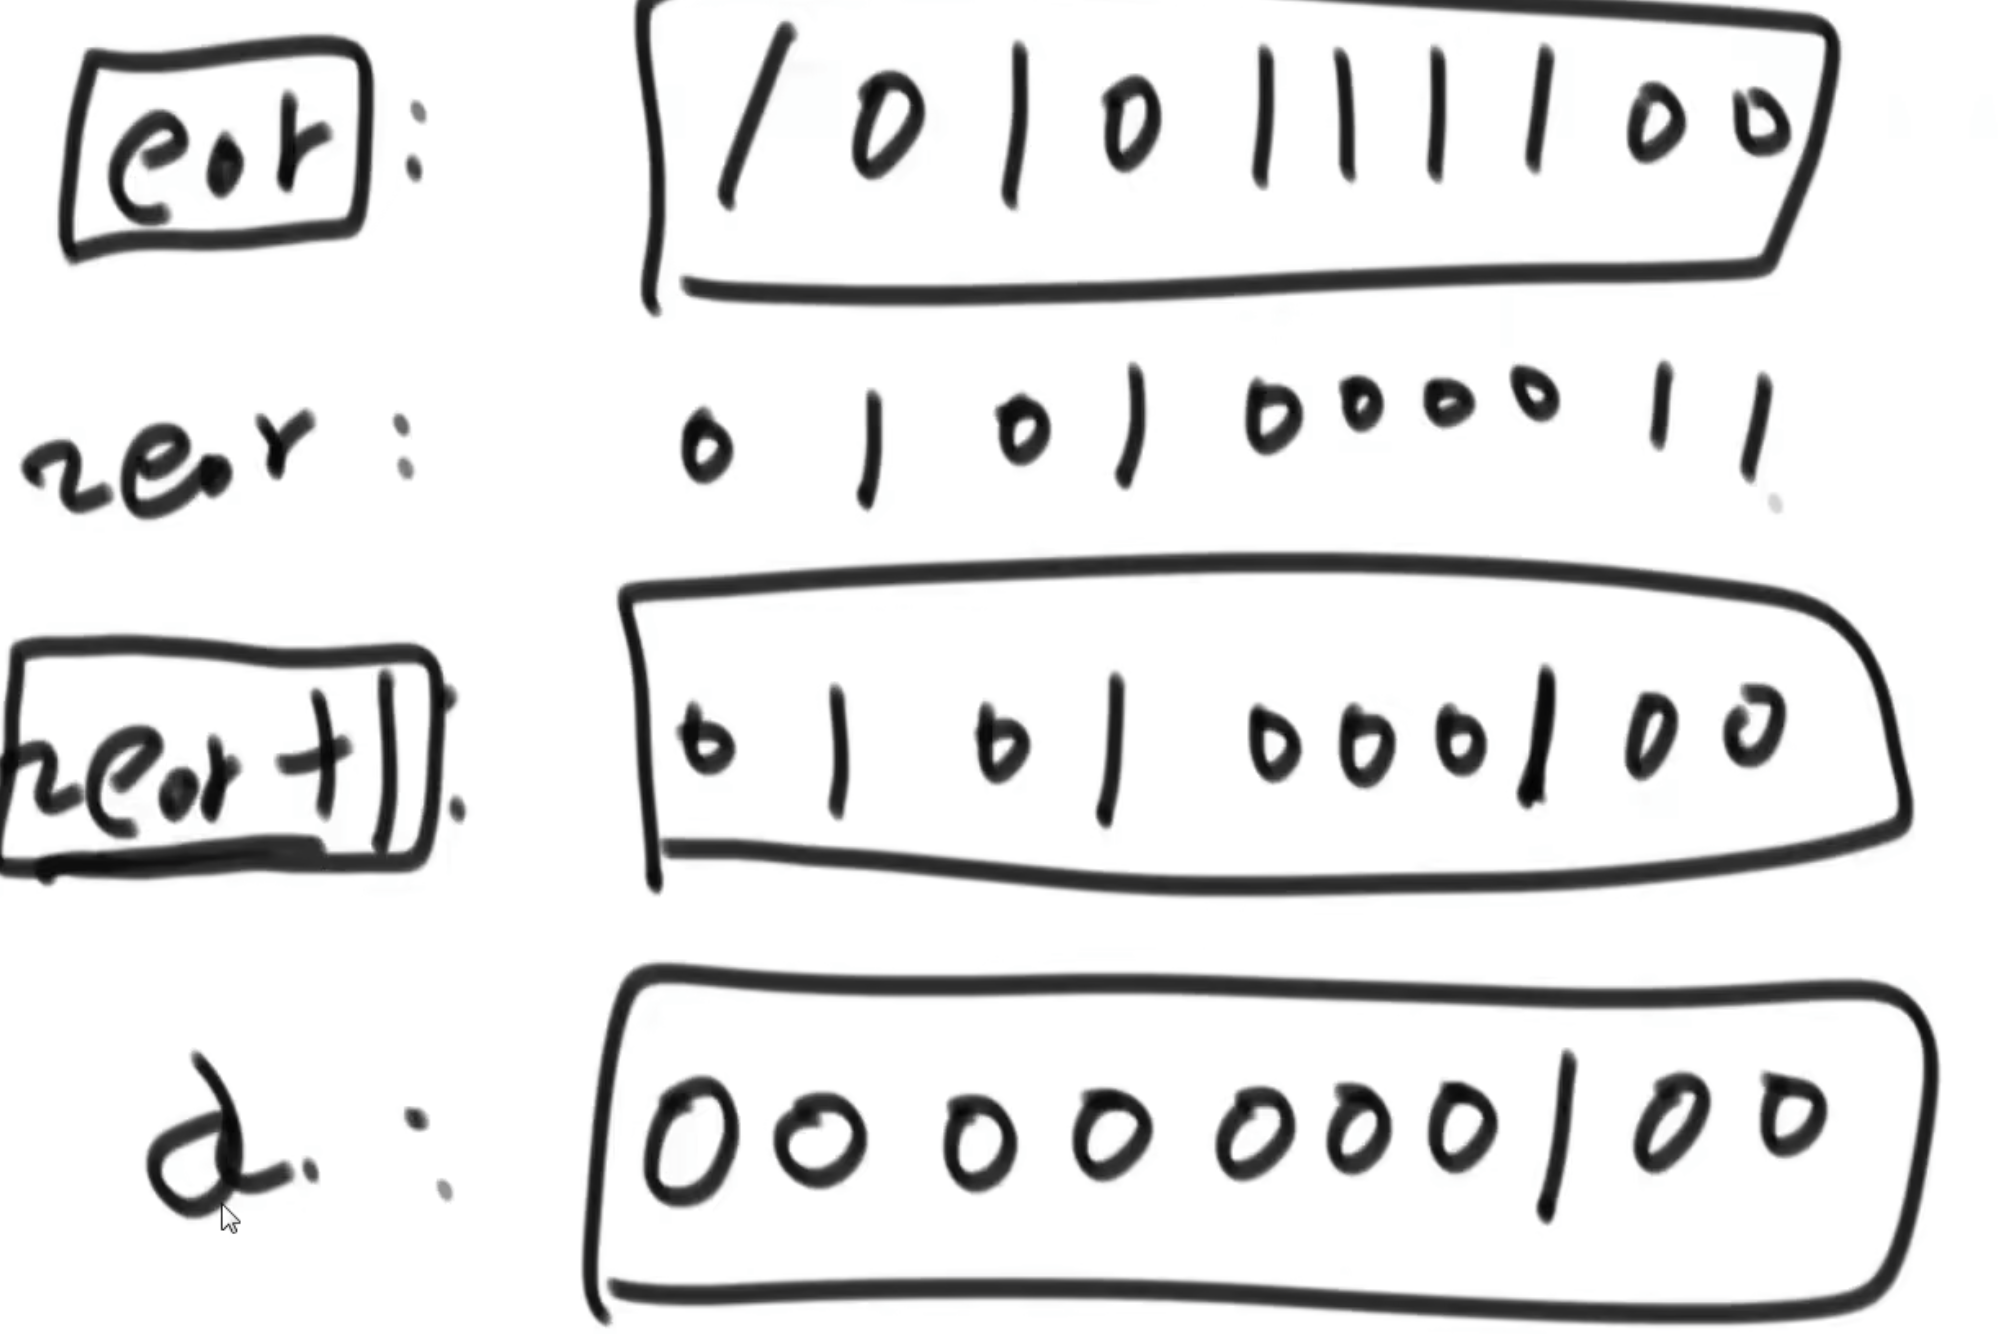 eor : 1010111100
~eor : 0101000011
~eor+1 : 0101000100
a : 0000000100